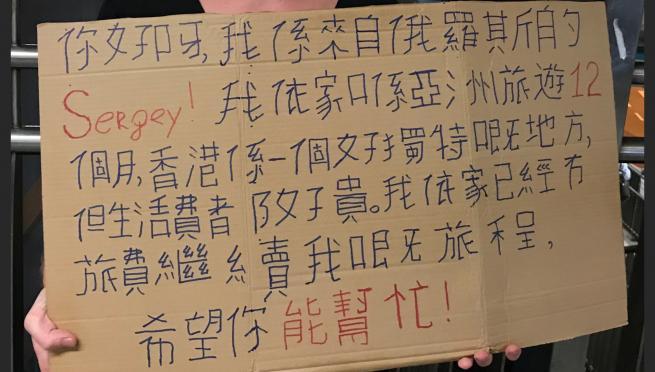 你好呀,我係來自俄羅斯的
Sergey! 我依家喺亞洲旅遊12
個月,香港係一個好獨特嘅地方,
但生活費都好貴。我依家已經冇
旅費繼續我嘅旅程,
希望你能幫忙!